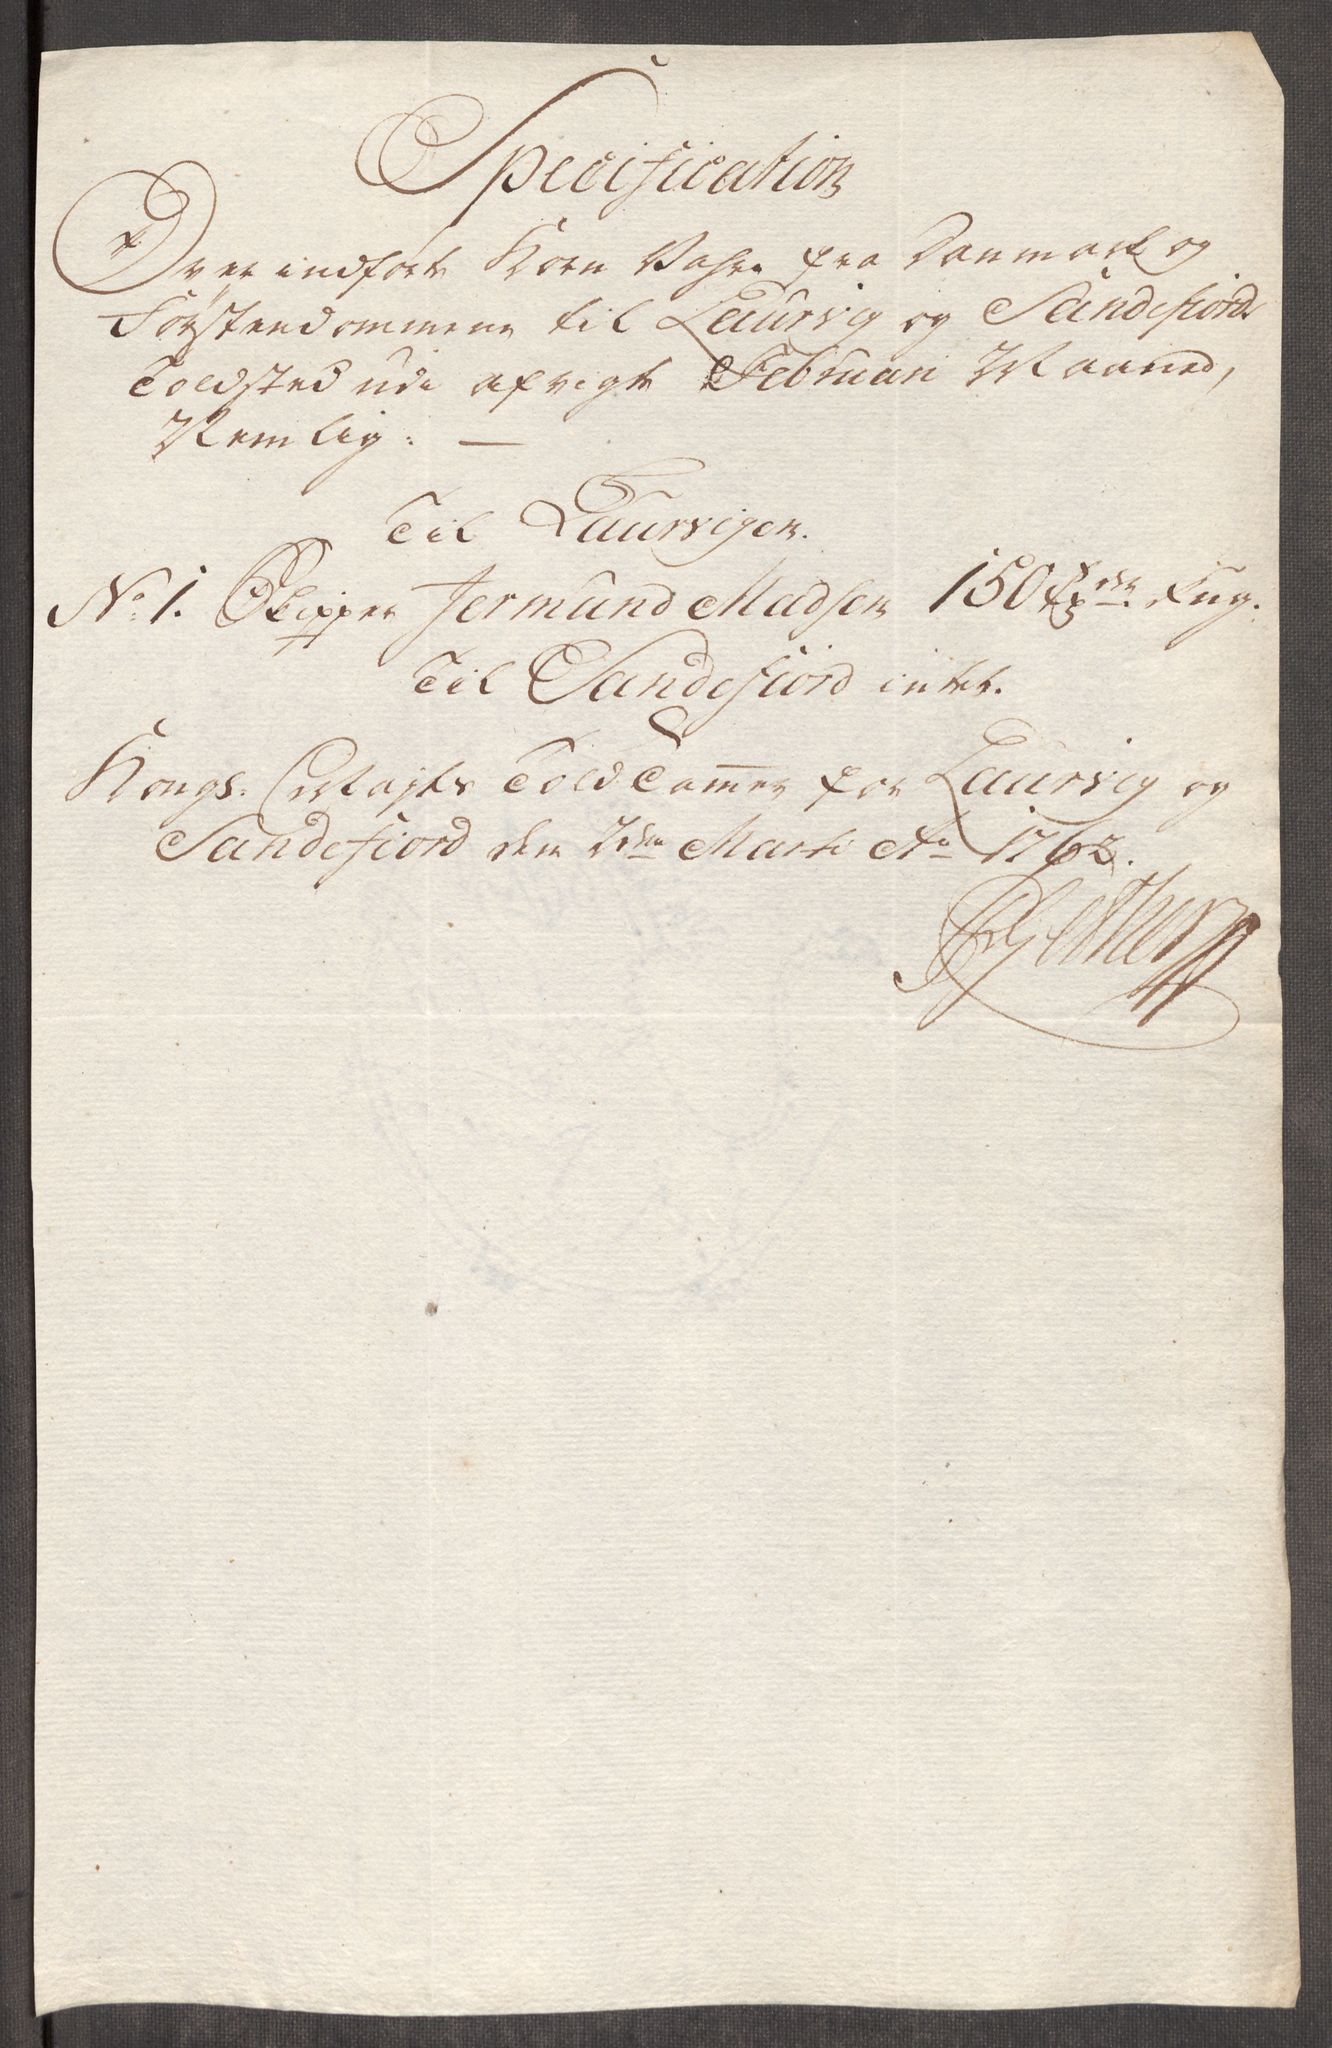 Specification
Over indført Korn Vahre fra Danmark og
Førstendommene til Laurvig og Sandefiord
Toldsted udi afvigte Februari Maaned,
Nemlig: —
Til Laurvigen.
No: 1. Skipper Jermund Madsen 150 Tdr Rug.
Til Sandefiord intet.
Kongs: Mayts Told Cammer for Laurvig og
Sandefiord den 2den Marti Ao 1763.